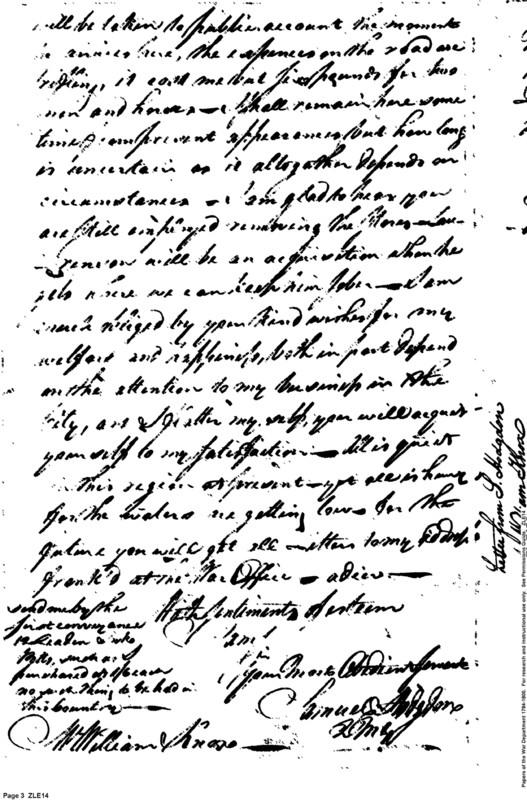 will be taken to public account the moment
he arrives here, the expences on the road are
it cost me but six pounds for two
men and horses – I shall remain here some
time from present appearances but how long
is uncertain as it altogather depends on
circumstances – I am glad to hear you
are still employed removing the Stores –
will be an acquisition when he
gets where we can keep him sober – I am
much obliged by your kind wishes for my
welfare and happiness, both in part depend
on the attention to my business in the
City, and I flatter my self, you will acquit
yourself to my satisfaction – All is quiet
in this region at present – yet all is
for the waters are getting low – for the
future you will get all letters to my address
frank'd at the War Office – adieu –
With Sentiments of esteem
I am
your Most Obedient Servant
Samuel Hodgdon
QMG
send me by the
first conveyance
12 Leaden
such as I
purchased of
no such thing to be had in
this Country –
Mr. William Knox
Letter from S. Hodgdon
to William Knox
Papers of the War Department 1784-1800. For research and instructional use only. See Permissions
Page 3 ZLE14